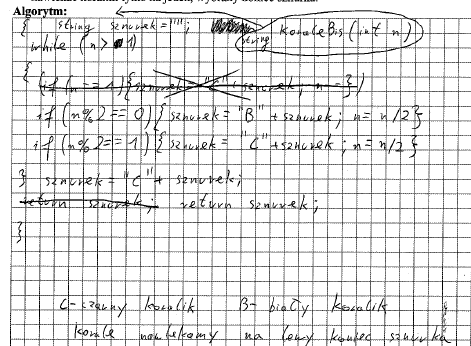 Algorytm:
string koraleBis(int n)
{ string sznurek = "";
while (n > 1)
{
if (n%2 == 0) { sznurek = "B" + sznurek; n = n/2 }
if (n%2 == 1) { sznurek = "C" + sznurek; n = n/2 }
} sznurek = "C" + sznurek;
return sznurek; return sznurek;
}
C - czarny koralik B - biały koralik
korale nawlekamy na lewy koniec sznurka